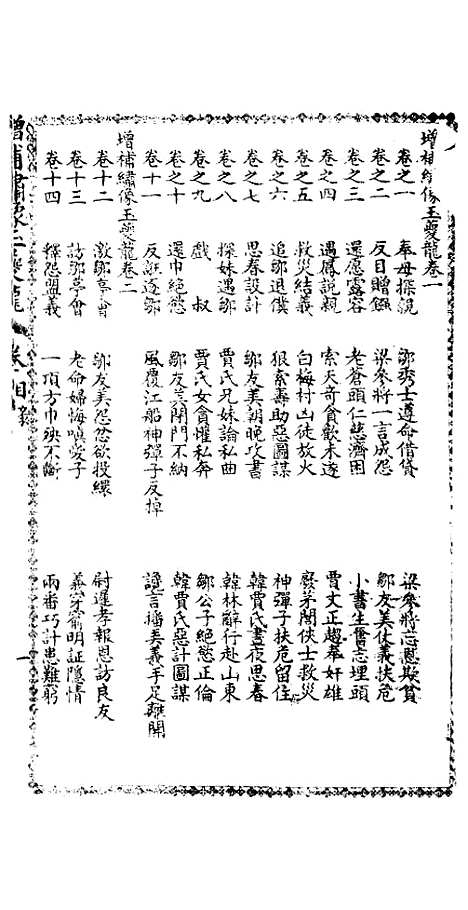 增補繡像玉夔龍卷一
卷之一 奉母探親 鄒秀士遵命借貸 梁參將忘恩欺貧
卷之二 反目贈銀 梁參將一言成怨 鄒友美仗義扶危
卷之三 還愿露容 老蒼頭仁慈濟困 小書生奮志埋頭
卷之四 遇属説親 索天奇貪歡未遂 賈文正趨奉奸雄
卷之五 救災結義 白梅村凶徒放火 廢茅閣俠士救災
卷之六 追鄒退僕 狠索壽助惡圖謀 神彈子扶危留住
卷之七 思春設計 鄒友美朝晚攻書 韓賈氏晝夜思春
卷之八 探妹遇鄒 賈氏兄妹論私曲 韓林辭行赴山東
卷之九 戲叔 賈氏女貪懽私奔 鄒公子絶慾正倫
卷之十 還巾絕慾 鄒友美閉門不納 韓賈氏惡計圖謀
卷十一 反誣逐鄒 風覆江船神彈子反掉 譖言播美義手足離開
增補繡像玉夔龍卷二
卷十二 激鄒亭會 鄒友美怨忿欲投繯 尉遲孝報恩訪良友
卷十三 訪鄒亭會 老命婦悔嗔愛子 義穿窬明証隱情
卷十四 釋怨盟義 一頂方巾殃不斷 兩番巧計患難躬
增補繡像玉夔龍 卷目錄